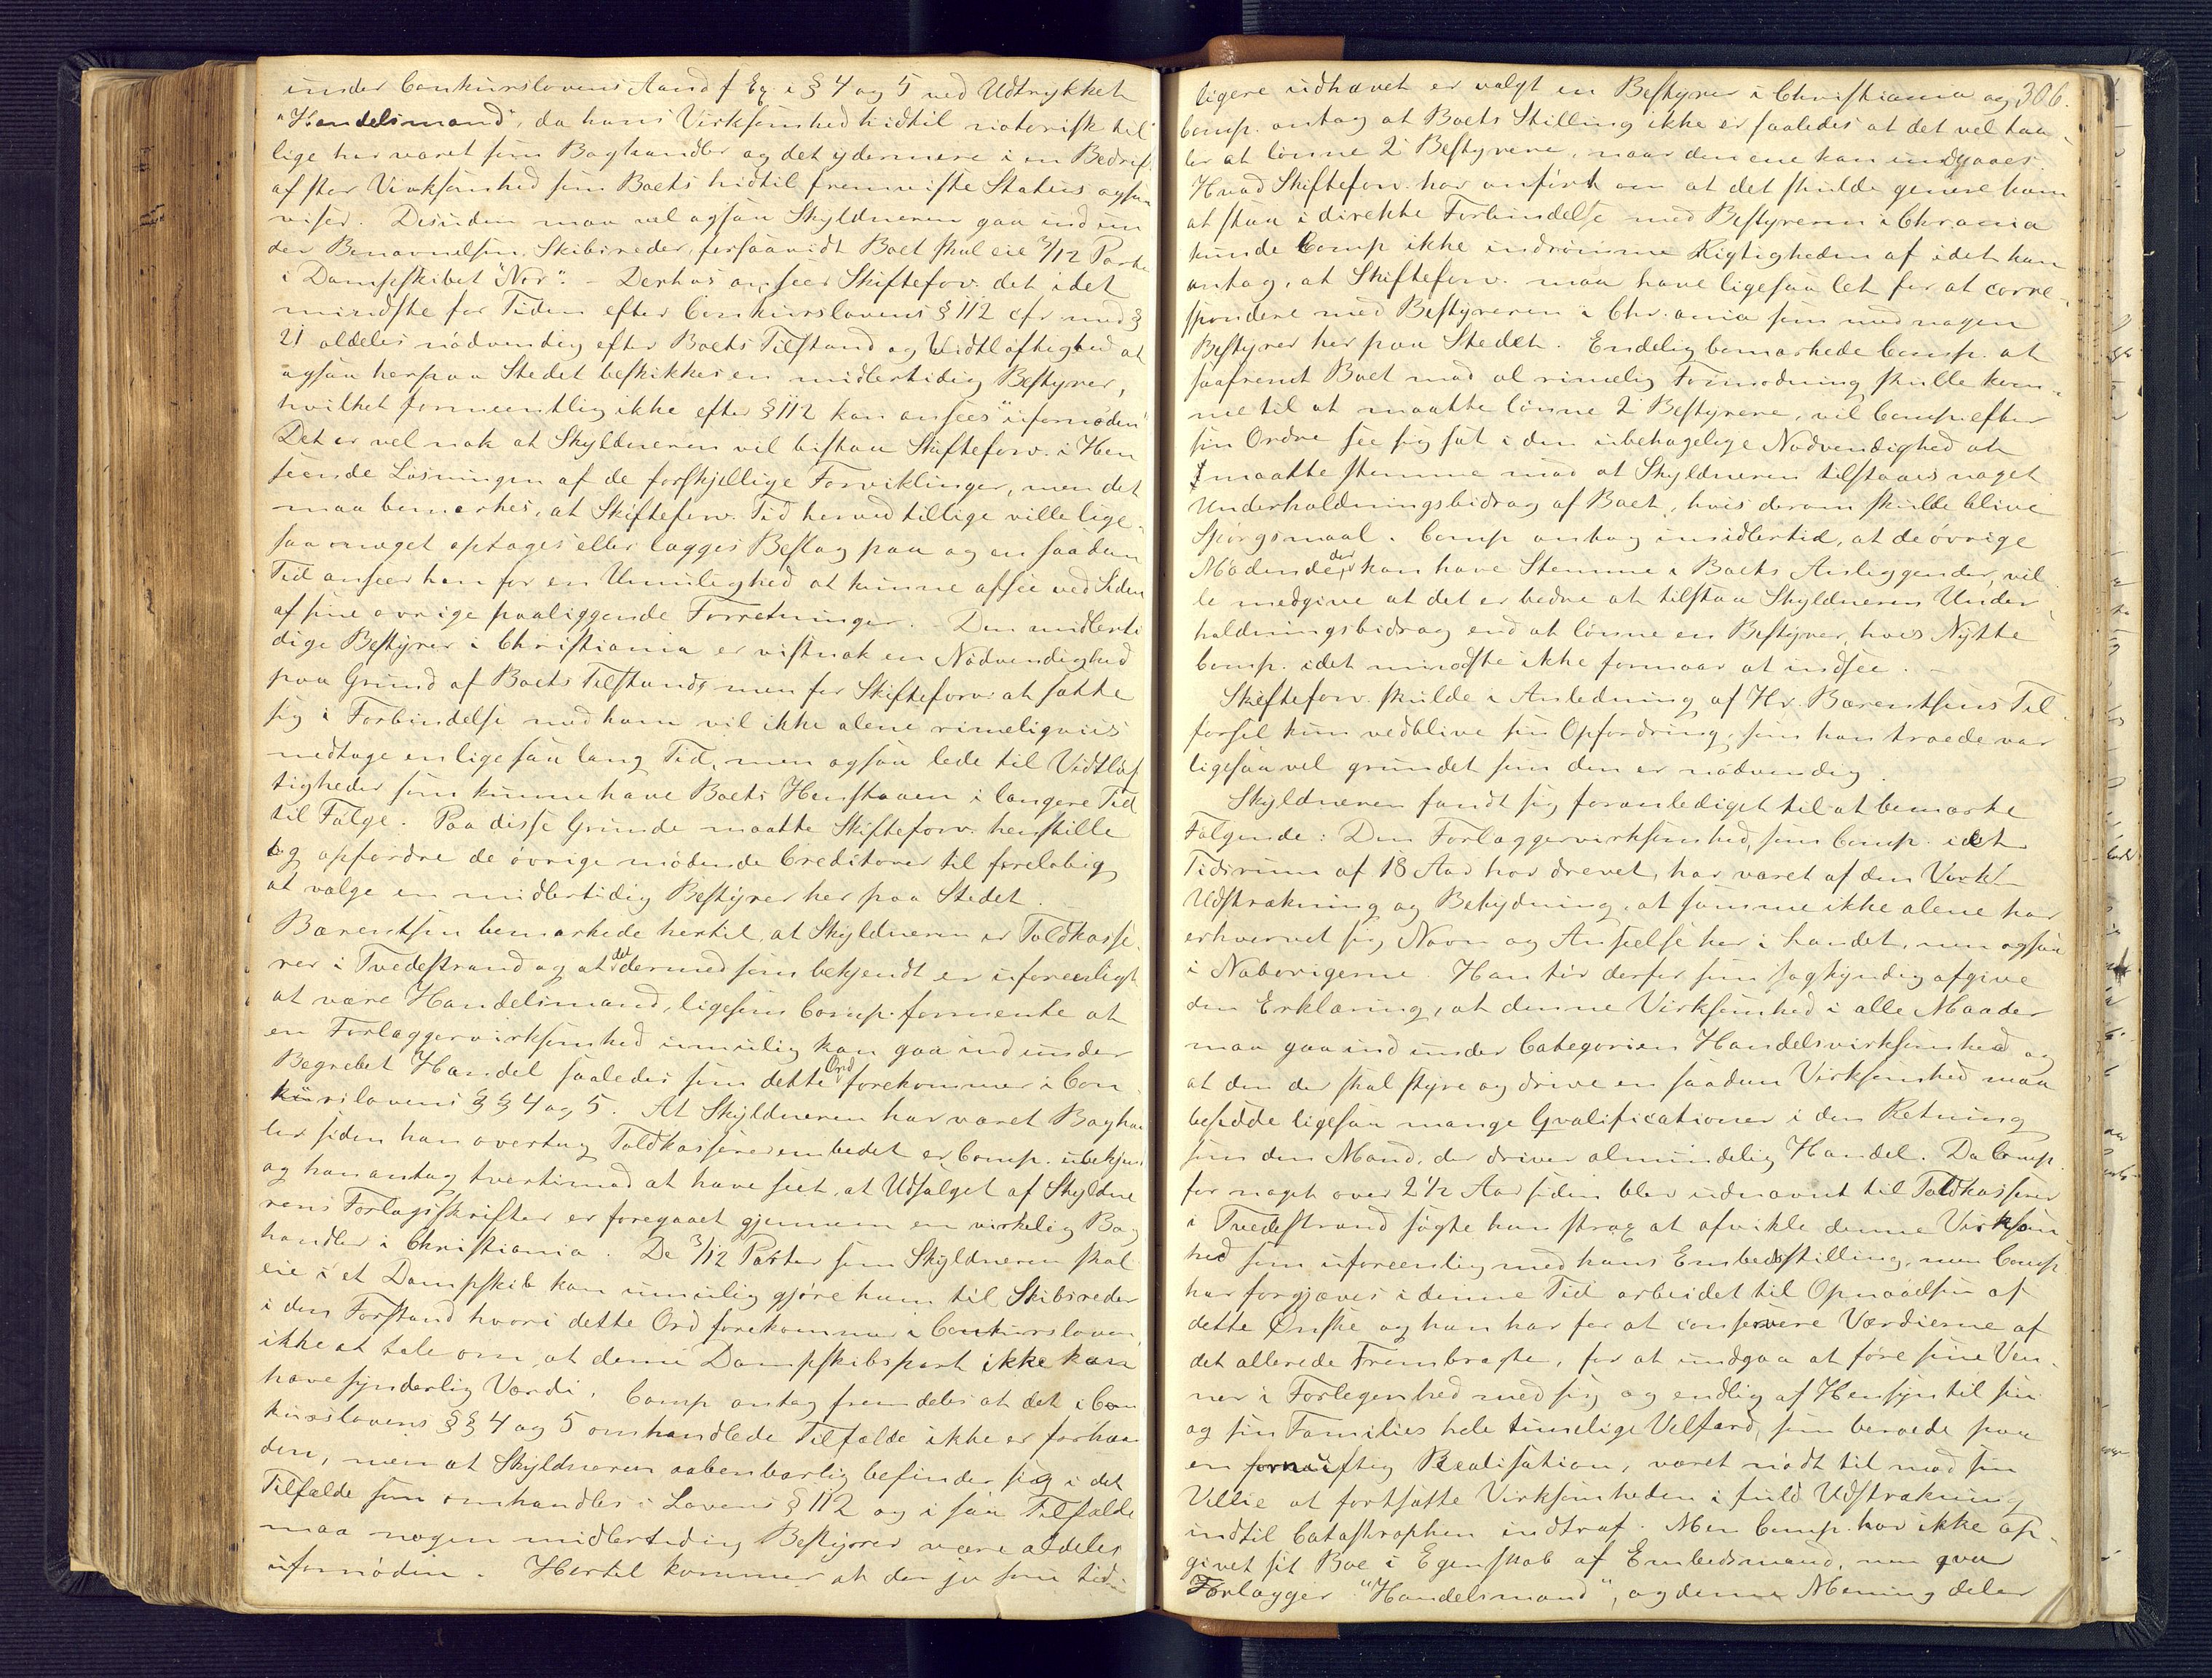 under Conkurslovens Aand f Ex. i § 4 og 5 ved Udtrykket
"Handelsmand", da hans Virksomhed hidtil notorisk til
lige har været som Boghandler og det ydermere i en Bedrift
af stor Virksomhed som Boets hidtil fremviste Status ogsaa
viser. Desuden maa vel ogsaa Skyldneren gaa ind un
der Benævnelsen Skibsreder, forsaavidt Boet skal eie 3/12 Parter
i Dampskibet "Nor". - Derhos anseer Skifteforv. det idet
mindste for Tiden efter Conkurslovens § 112 cfr med §
21 aldeles nødvendig efter Boets Tilstand og Vidtløftighed at
ogsaa her paa Stedet beskikkes en midlertidig Bestyrer,
hvilket formeentlig ikke efter § 112 kan ansees "ufornøden"
Det er vel nok at Skyldneren vil bistaa Skifteforv. i Hen
seende Løsningen af de forskjellige Forviklinger, men det
maa bemærkes, at Skifteforv. Tid herved tillige ville lige-
saa meget optages eller lægges Beslag paa og en saadan
Tid anseer han for en Umulighed at kunne afsee ved Siden
af sine øvrige paaliggende Forretninger. - Den midlerti
dige Bestyrer i Christiania er vistnok en Nødvendighed
paa Grund af Boets Tilstand, men for Skifteforv. at sætte
sig i Forbindelse med ham vil ikke alene rimeligviis
medtage en lige saa lang Tid, men ogsaa lede til Vidtløf
tigheder som kunne have Boets Henstaaen i længere Tid
til Følge. Paa disse Grunde maatte Skifteforv. henstille
og opfordre de øvrige mødende Creditorer til foreløbig
at vælge en midlertidig Bestyrer her paa Stedet.
Bærentsen bemærkede hertil, at Skyldneren er Toldkasse-
rer i Tvedestrand og at det dermed som bekjendt er uforeenligt
at være Handelsmand, ligesom Comp. formente at
en Forlæggervirksomhed umulig kan gaa ind under
Begrebet Handel saaledes som dette Ord forekommer i Con
kurslovens §§ 4 og 5. At Skyldneren har været Boghand
ler siden han overtog Toldkassererembedet er Comp. ubekjendt
og han antog tvertimod at have seet, at Udsalget af Skyldne
rens Forlagsskrifter er foregaaet gjennem en virkelig Bog
handler i Christiania. De 3/12 Parter som Skyldneren skal
eie i et Dampskib kan umulig gjøre ham til Skibsreder
i den Forstand hvori dette Ord forekommer i Conkursloven
ikke at tale om, at denne Dampskibspart ikke kan
have synderlig Værdi. Comp antog fremdeles at det i Con
kurslovens §§ 4 og 5 omhandlede Tilfælde ikke er forhaan
den, men at Skyldneren aabenbarlig befinder sig i det
Tilfælde som omhandles i Lovens § 112 og i saa Tilfælde
maa nogen midlertidig Bestyrer være aldeles
ufornøden. Hertil kommer at der jo som tid-
306.
ligere udhævet er valgt en Bestyrer i Christiania og
Comp. antog at Boets Stilling ikke er saaledes at det vel taa-
ler at lønne 2 Bestyrere, naar den ene kan undgaaes.
Hvad Skifteforv. har anført om at det skulde genere ham
at staa i direkte Forbindelse med Bestyreren i Chrania
kunde Comp ikke indrømme Rigtigheden af idet han
antog, at Skifteforv. maa have ligesaa let for at corre-
spondere med Bestyreren i Chr.ania som med nogen
Bestyrer her paa Stedet. Endelig bemærkede Comp. at
saafremt Boet mod al rimelig Formodning skulle kom-
me til at maatte lønne 2 Bestyrere, vil Comp efter
sin Ordre see sig sat i den ubehagelige Nødvendighed at
maatte stemme mod at Skyldneren tilstaaes noget
Underholdningsbidrag af Boet, hvis derom skulde blive
Spørgsmaal. Comp antog imidlertid, at de øvrige
Mødende, der kan have Stemme i Boets Anliggender, vil
le medgive at det er bedre at tilstaa Skyldneren Under-
holdningsbidrag end at lønne en Bestyrer, hvis Nytte
Comp. idet mindste ikke formaar at indsee. -
Skifteforv. skulde i Anledning af Hr. Bærentsens Til-
førsel kun vedblive sin Opfordring, som han troede var
ligesaa vel grundet som den er nødvendig.
Skyldneren fandt sig foranlediget til at bemærke
Følgende: Den Forlæggervirksomhed, som Comp. i et
Tidsrum af 18 Aar har drevet, har været af den
Udstrækning og Betydning, at samme ikke alene har
erhvervet sig Navn og Anseelse her i Landet, men ogsaa
i Naborigerne. Han tør derfor som sagkyndig afgive
den Erklæring, at denne Virksomhed i alle Maader
maa gaa ind under Categorien Handelsvirksomhed og
at den der skal styre og drive en saadan Virksomhed maa
besidde ligesaa mange Qvalificationer i den Retning
som den Mand, der driver almindelig Handel. Da Comp.
for noget over 2 1/2 Aar siden blev udnævnt til Toldkasserer
i Tvedestrand søgte han strax at afvikle denne Virksom-
hed som uforeenlig med hans Embedsstilling, men Comp.
har forgjæves i denne Tid arbeidet til Opnaaelsen af
dette Ønske og han har for at conservere Værdierne af
det allerede Frembragte, for at undgaa at føre sine Ven-
ner i Forlegenhed med sig og endlig af Hensyn til sin
og sin Families hele timelige Velfærd, som beroede paa
en fornuftig Realisation, været nødt til mod sin
Villie at fortsætte Virksomheden i fuld Udstrækning
indtil Catastrophen indtraf. Men Comp. har ikke op-
givet sit Boe i Egenskab af Embedsmand, men qva
Forlægger "Handelsmand", og denne Mening deler